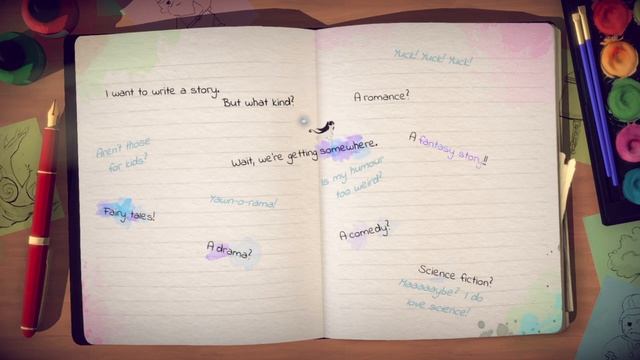 I want to write a story.
But what kind?
Aren't those
for kids?
Wait, we're getting somewhere.
Fairy tales!
Yawn-o-rama!
A drama?
Yuck! Yuck! Yuck!
A romance?
A fantasy story!!
Is my humour
too weird?
A comedy?
Science fiction?
Maaaaybe? I do
love science!